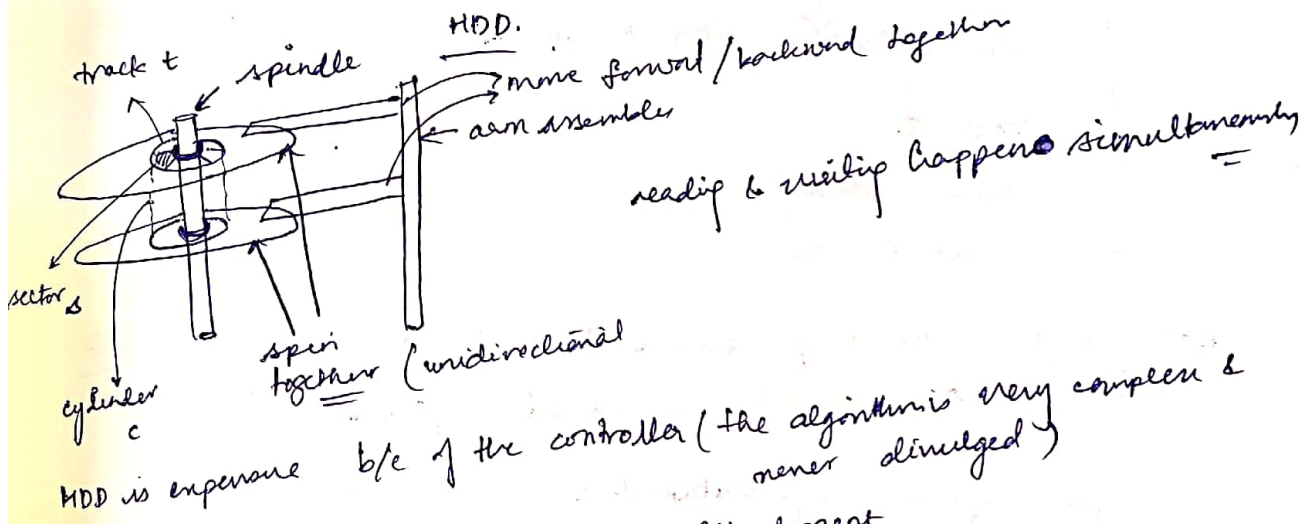 HDD.
track t
spindle
move forward / backward together
arm assembler
reading & writing happens simultaneously
sector s
spin
together (unidirectional
cylinder
c
HDD is expensive b/c of the controller (the algorithm is very complex &
never divulged)